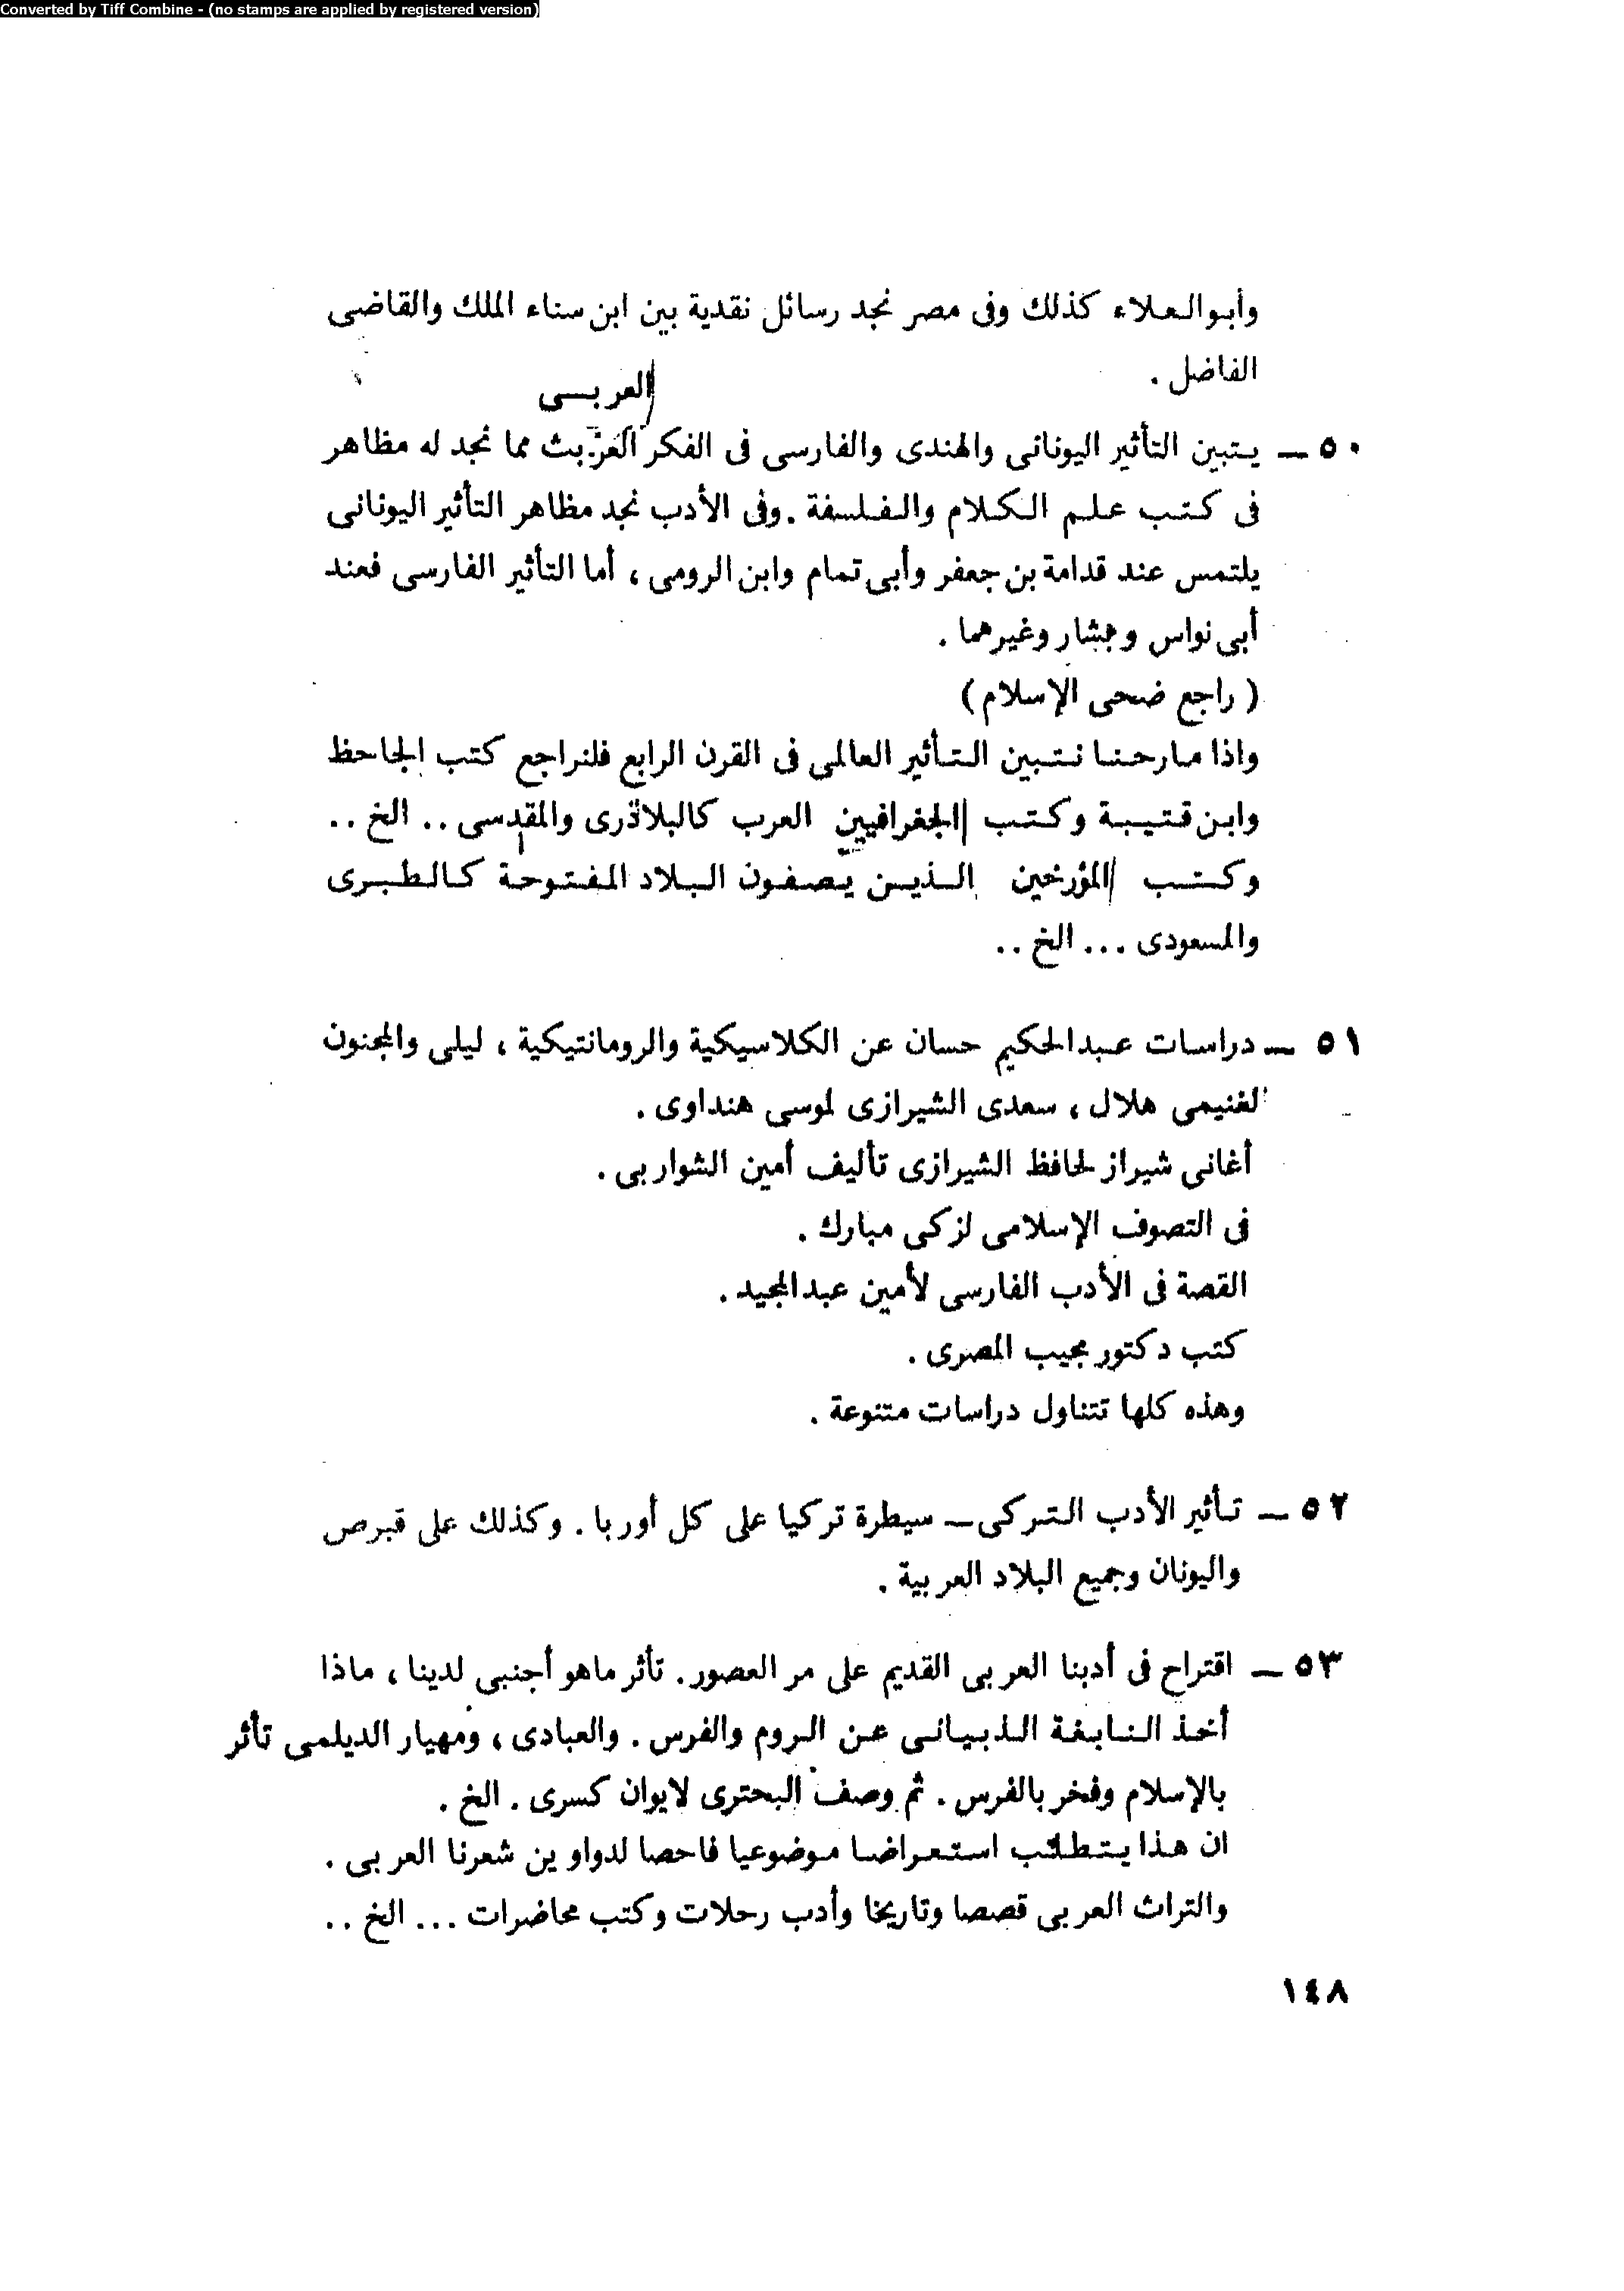 Converted by Tiff Combine - (no stamps are applied by registered version)
وأبوالعلاء كذلك وفى مصر نجد رسائل نقدية بين ابن سناء الملك والقاضى
الفاضل .
العربى
٥٠ — يتبين التأثير اليونانى والهندى والفارسى فى الفكر مما نجد له مظاهر
فى كتب علم الكلام والفلسفة . وفى الأدب نجد مظاهر التأثير اليونانى
يلتمس عند قدامة بن جعفر وأبى تمام وابن الرومى ، أما التأثير الفارسى فعند
أبى نواس وبشار وغيرهما .
( راجع ضحى الإسلام )
واذا مارحنا نتبين التأثير العالمى فى القرن الرابع فلنراجع كتب الجاحظ
وابن قتيبة وكتب الجغرافيين العرب كالبلاذرى والمقدسى .. الخ ..
وكتب المؤرخين الذين يصفون البلاد المفتوحة كالطبرى
والمسعودى ... الخ ..
٥١ — دراسات عبدالحكيم حسان عن الكلاسيكية والرومانتيكية ، ليلى والمجنون
لغنيمى هلال ، سعدى الشيرازى لموسى هنداوى .
أغانى شيراز لحافظ الشيرازى تأليف أمين الشواربى .
فى التصوف الإسلامى لزكى مبارك .
القصة فى الأدب الفارسى لأمين عبدالمجيد .
كتب دكتور مجيب المصرى .
وهذه كلها تتناول دراسات متنوعة .
٥٢ — تأثير الأدب التركى — سيطرة تركيا على كل أوربا . وكذلك على قبرص
واليونان وجميع البلاد العربية .
٥٣ — اقتراح فى أدبنا العربى القديم على مر العصور . تأثر ماهو أجنبى لدينا ، ماذا
أخذ النابغة الذبيانى عن الروم والفرس . والعبادى ، ومهيار الديلمى تأثر
بالإسلام وفخر بالفرس . ثم وصف البحترى لايوان كسرى . الخ .
ان هذا يتطلب استعراضا موضوعيا فاحصا لدواوين شعرنا العربى .
والتراث العربى قصصا وتاريخا وأدب رحلات وكتب محاضرات ... الخ ..
١٤٨